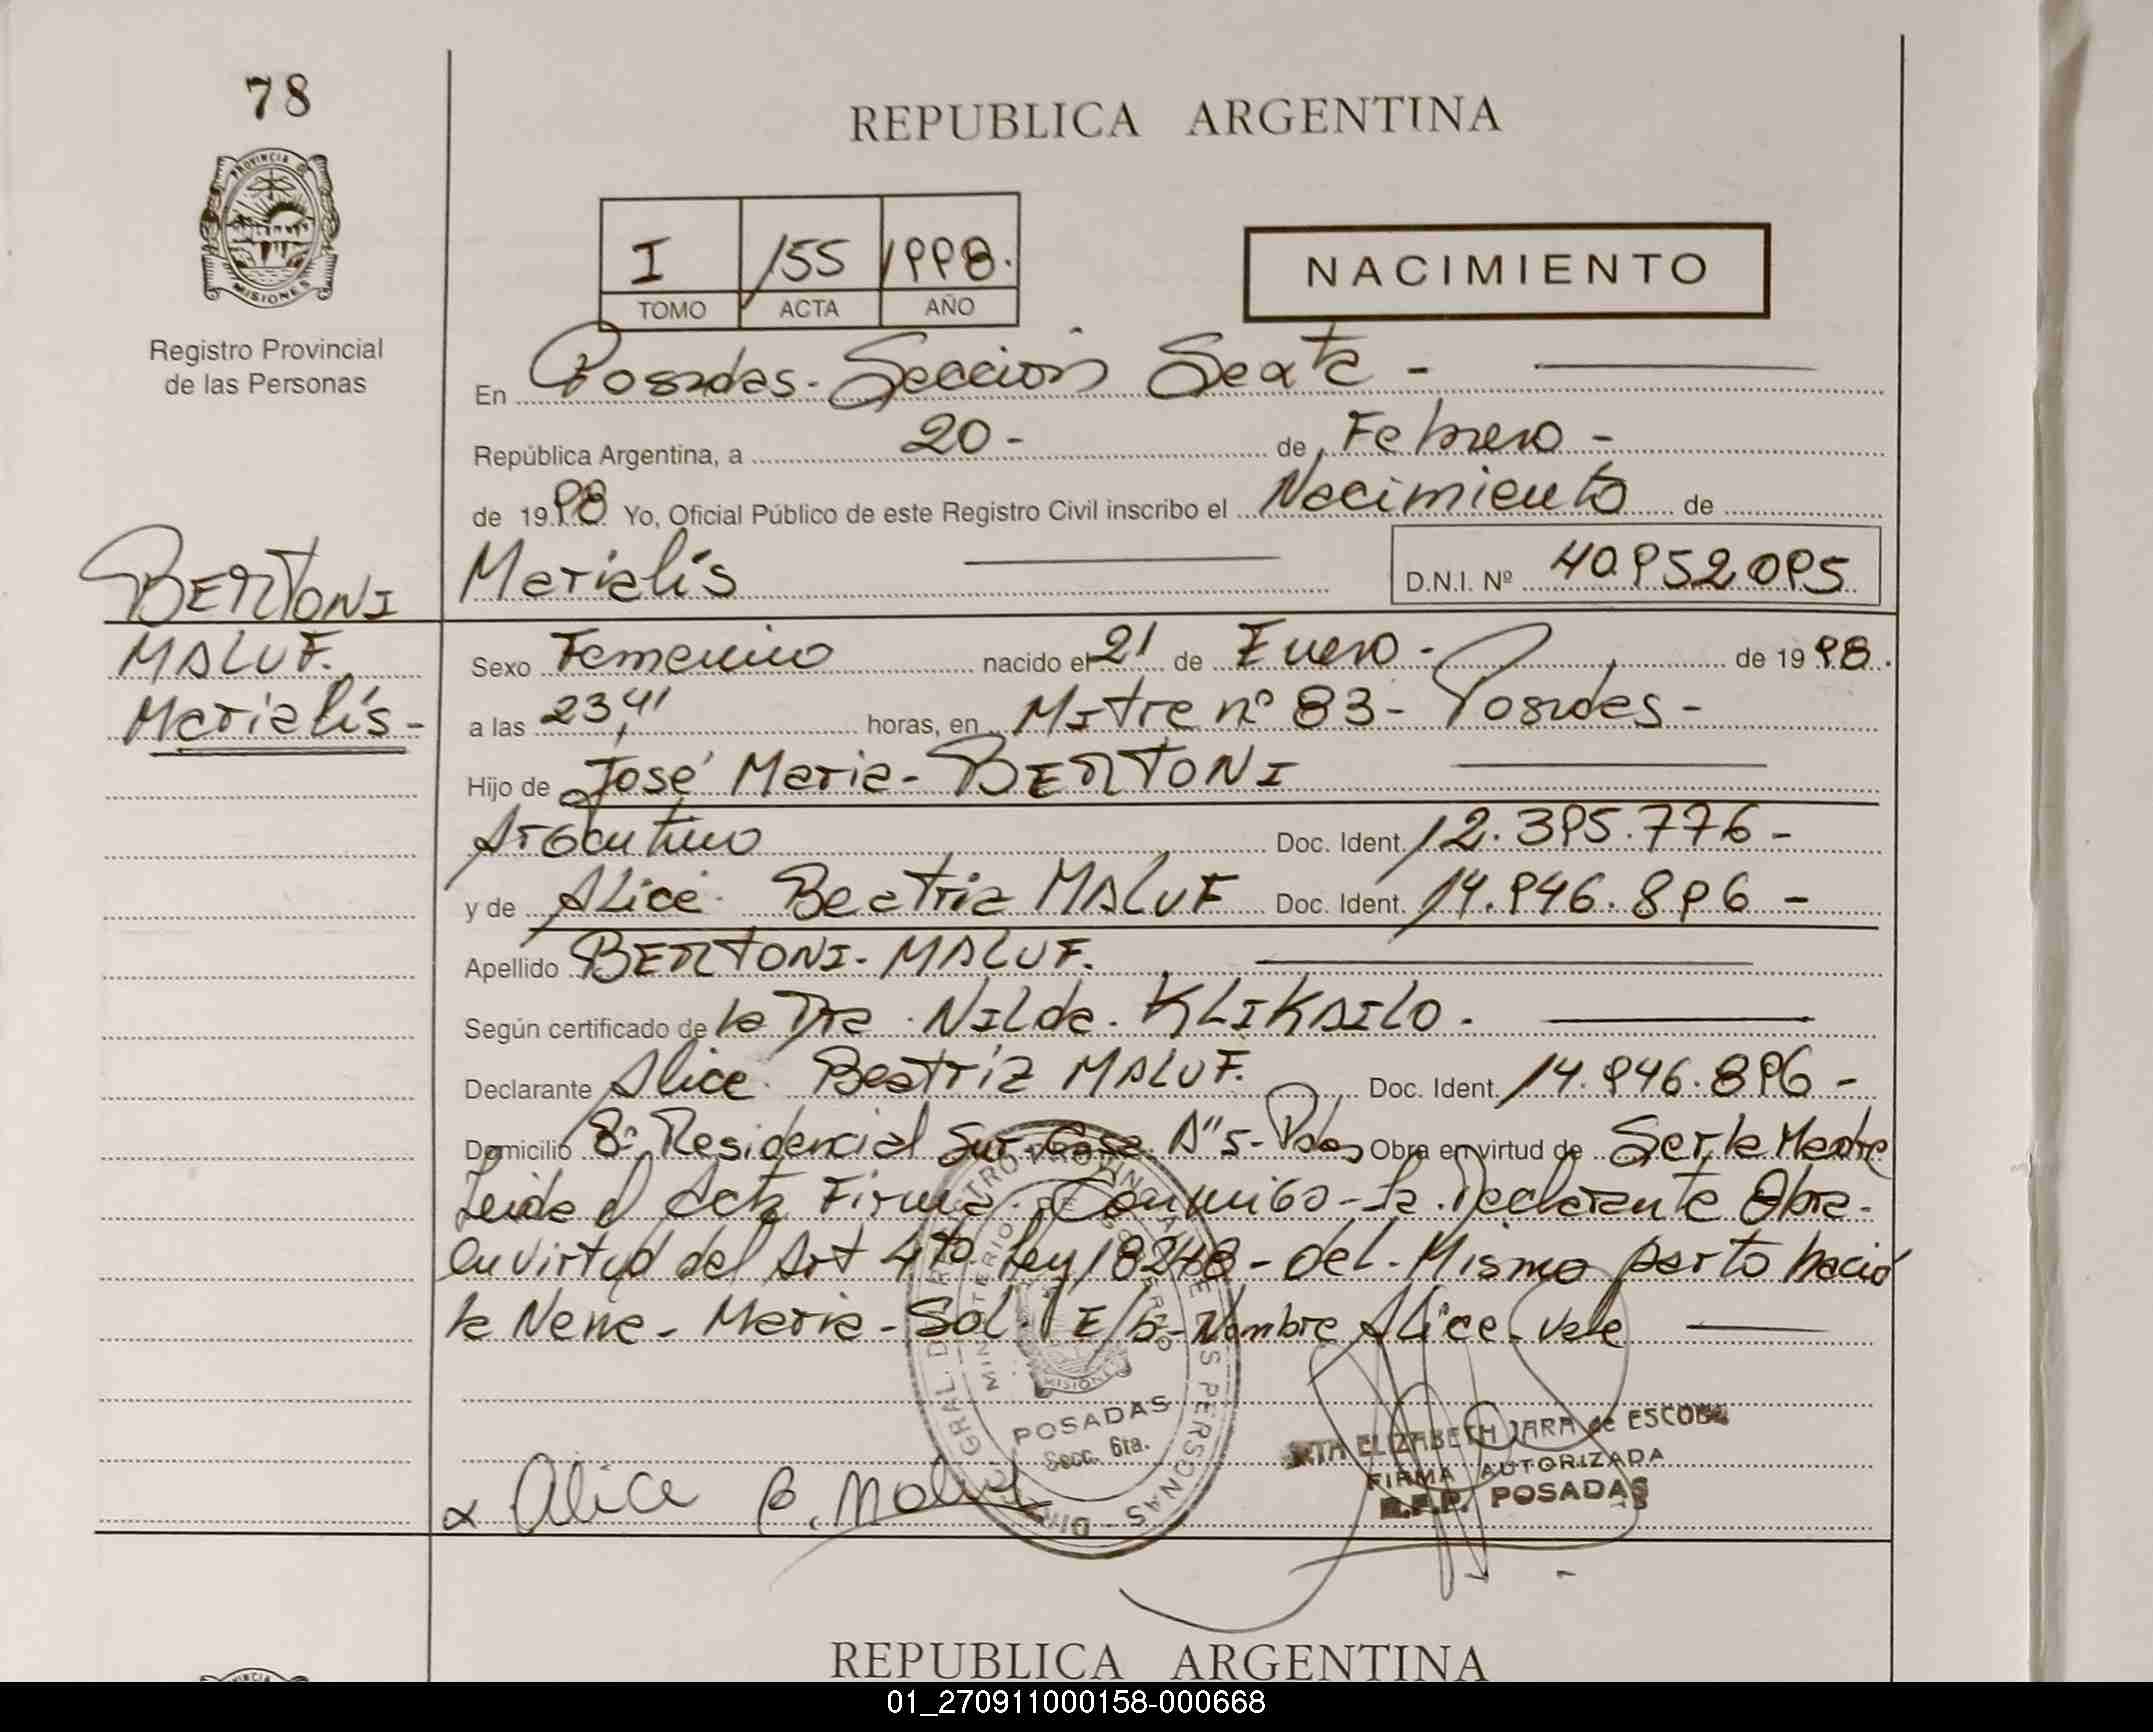 78
REPUBLICA ARGENTINA
PROVINCIA DE
MISIONES
Registro Provincial
de las Personas
I 155 1998.
TOMO ACTA AÑO
NACIMIENTO
En Posadas - Sección Sexta -
República Argentina, a 20 - de Febrero -
de 1998 Yo, Oficial Público de este Registro Civil inscribo el Nacimiento de
Marialís D.N.I. Nº 40.952.095
BERTONI
MALUF.
Marialís -
Sexo Femenino nacido el 21 de Enero - de 1998.
a las 23,41 horas, en Mitre nº 83 - Posadas -
Hijo de José Maria - BERTONI
Argentino Doc. Ident. 12.395.776 -
y de Alice Beatriz MALUF Doc. Ident. 14.946.896 -
Apellido BERTONI - MALUF.
Según certificado de la Dra. Nilda. KLIKAILO.
Declarante Alice Beatríz MALUF. Doc. Ident. 14.946.896 -
Domicilio 8º Residencial Sur Casa Nº 5 - Pdas Obra en virtud de Ser la Madre
Leida el Acta Firma Conmigo - la Declarante Obra -
en virtud del Art 4to. Ley 18248 - del Mismo parto nació
la Nena - Maria - Sol. E/b - Nombre Alice - Vale
DIR. GRAL. DE REGISTRO PROVINCIAL DE LAS PERSONAS
MINISTERIO DE GOBIERNO
MISIONES
POSADAS
Secc. 6ta.
Alice B. Maluf
ELIZABETH JARA de ESCOBAR
FIRMA AUTORIZADA
R.P.P. POSADAS
REPUBLICA ARGENTINA
01_270911000158-000668